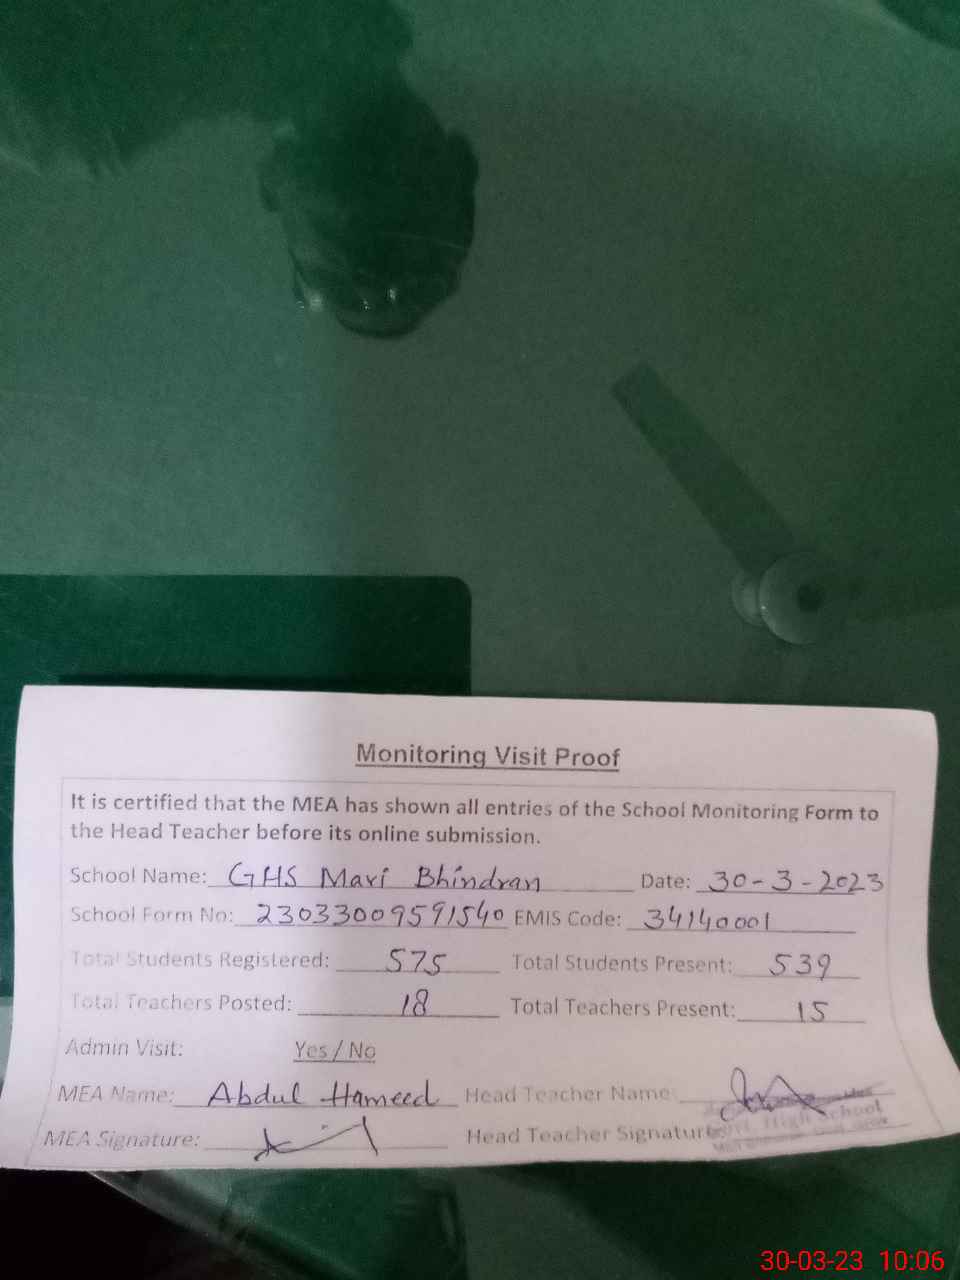 Monitoring Visit Proof
It is certified that the MEA has shown all entries of the School Monitoring Form to
the Head Teacher before its online submission.
School Name: GHS Mari Bhindran Date: 30-3-2023
School Form No: 23033009591540 EMIS Code: 34140001
Total Students Registered: 575 Total Students Present: 539
Total Teachers Posted: 18 Total Teachers Present: 15
Admin Visit: Yes / No
MEA Name: Abdul Hameed Head Teacher Name:
MEA Signature: Head Teacher Signature:
High School
30-03-23 10:06